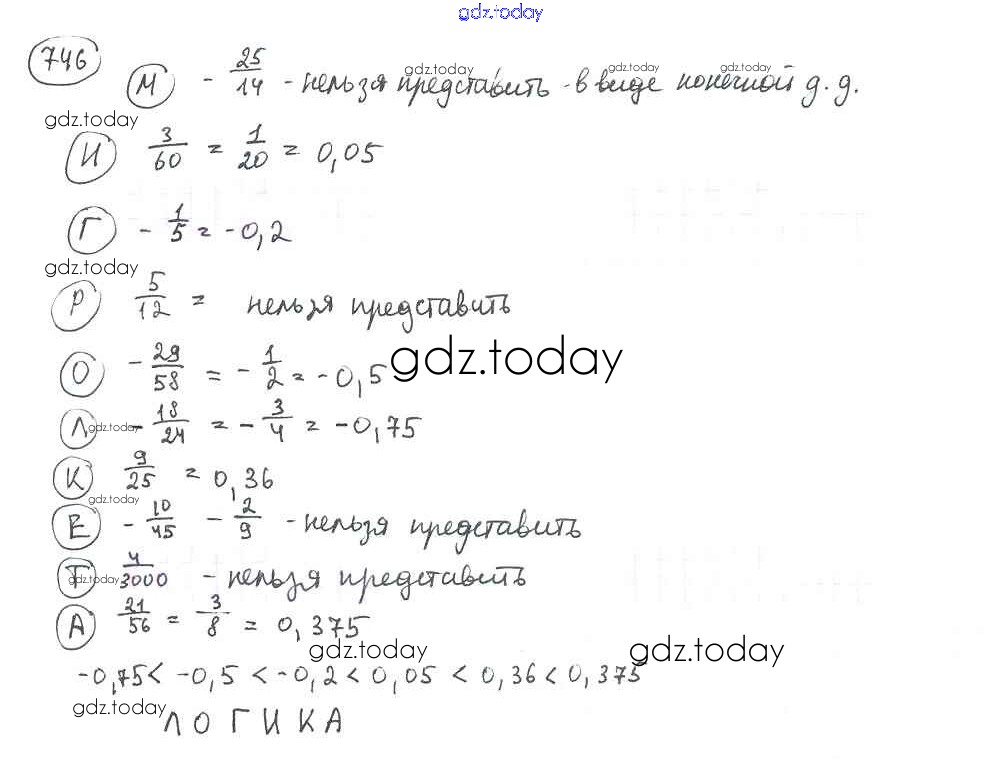 gdz.today
746
М - 25/14 - нельзя представить - в виде конечной д. д.
gdz.today gdz.today gdz.today
gdz.today
И 3/60 = 1/20 = 0,05
Г - 1/5 = -0,2
gdz.today
Р 5/12 = нельзя представить
О - 29/58 = - 1/2 = -0,5
gdz.today
Л - 18/24 = - 3/4 = -0,75
gdz.today
К 9/25 = 0,36
gdz.today
Е - 10/45 - 2/9 - нельзя представить
Т 4/3000 - нельзя представить
gdz.today
А 21/56 = 3/8 = 0,375
gdz.today gdz.today
-0,75 < -0,5 < -0,2 < 0,05 < 0,36 < 0,375
gdz.today
ЛОГИКА